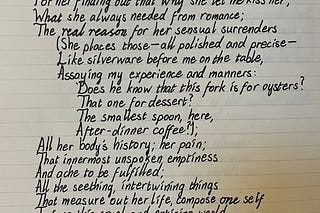 For her finding out that why she let me kiss her,
What she always needed from romance;
The real reason for her sensual surrenders
(She places those—all polished and precise—
Like silverware before me on the table,
Assaying my experience and manners:
Does he know that this fork is for oysters?
That one for dessert?
The smallest spoon, here,
After-dinner coffee?);
All her body's history; her pain;
That innermost unspoken emptiness
And ache to be fulfilled;
All the seething, intertwining things
That measure out her life, compose one self